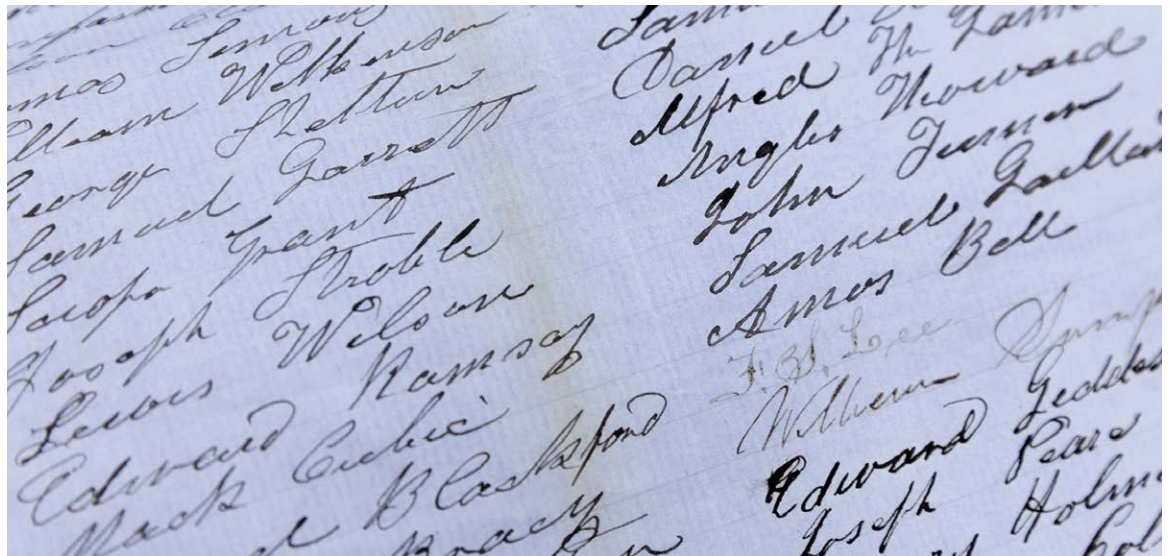 omas Simon
lliam Wilkenson
George Shelton
Samuel Garrett
Joseph Grant
Joseph Stroble
Lewis Wilson
Edward Ramsay
Mack Cubic
d Blackford
Brady
Sam
Daniel
Alfred
Angles Howard
John Turner
Samuel Gaillar
Amos Bell
F. S. Lee
William Sump
Edward Geddes
Joseph Pear
Holm